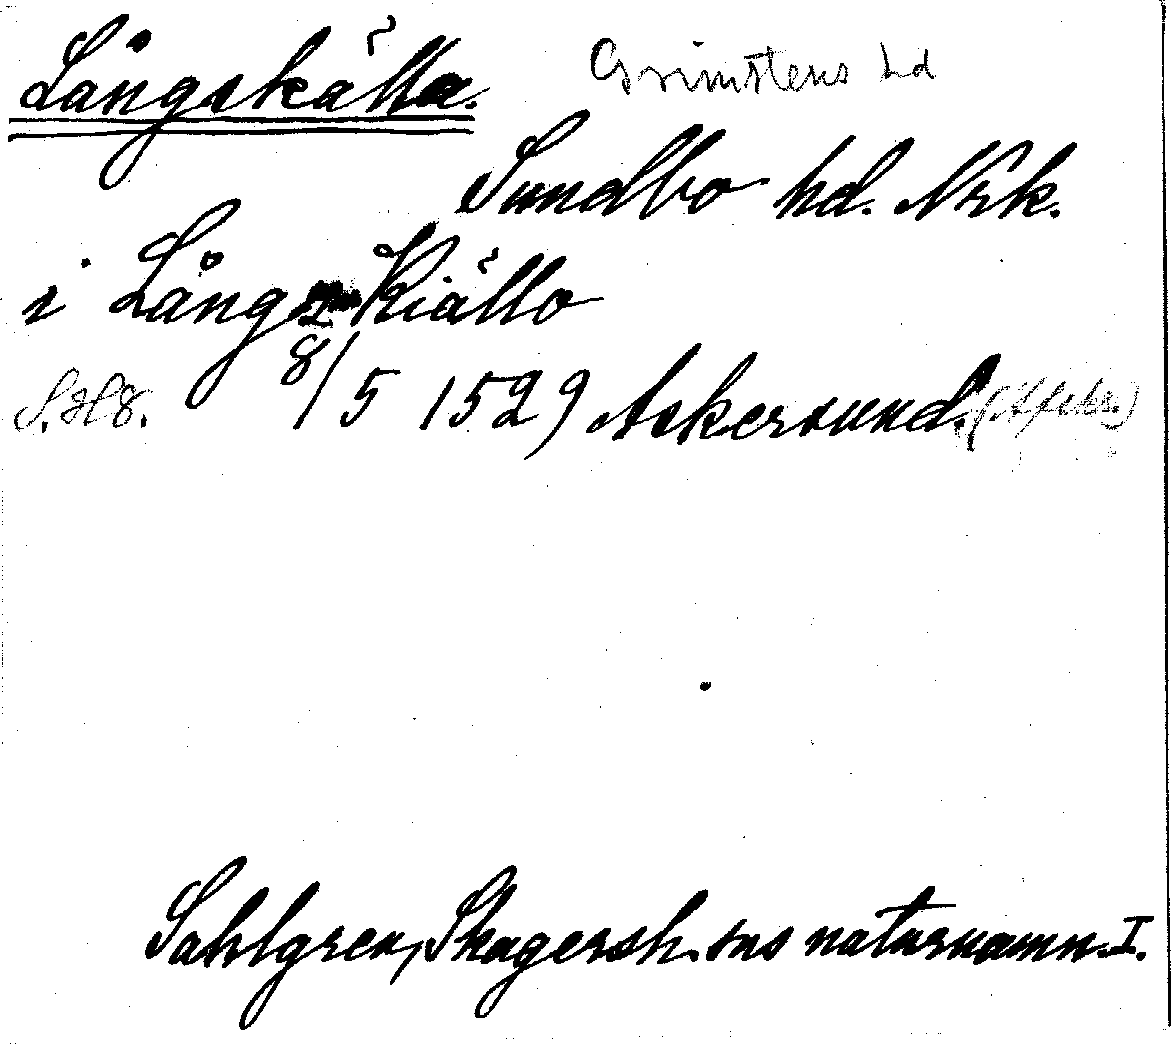 Långskälla. Grimstens hd
Sundbo hd. Nrk.
i Långz Kiällo
S. 218. 8/5 1529 Askersund.
Sahlgren, Skagersh. sns naturnamn. I.